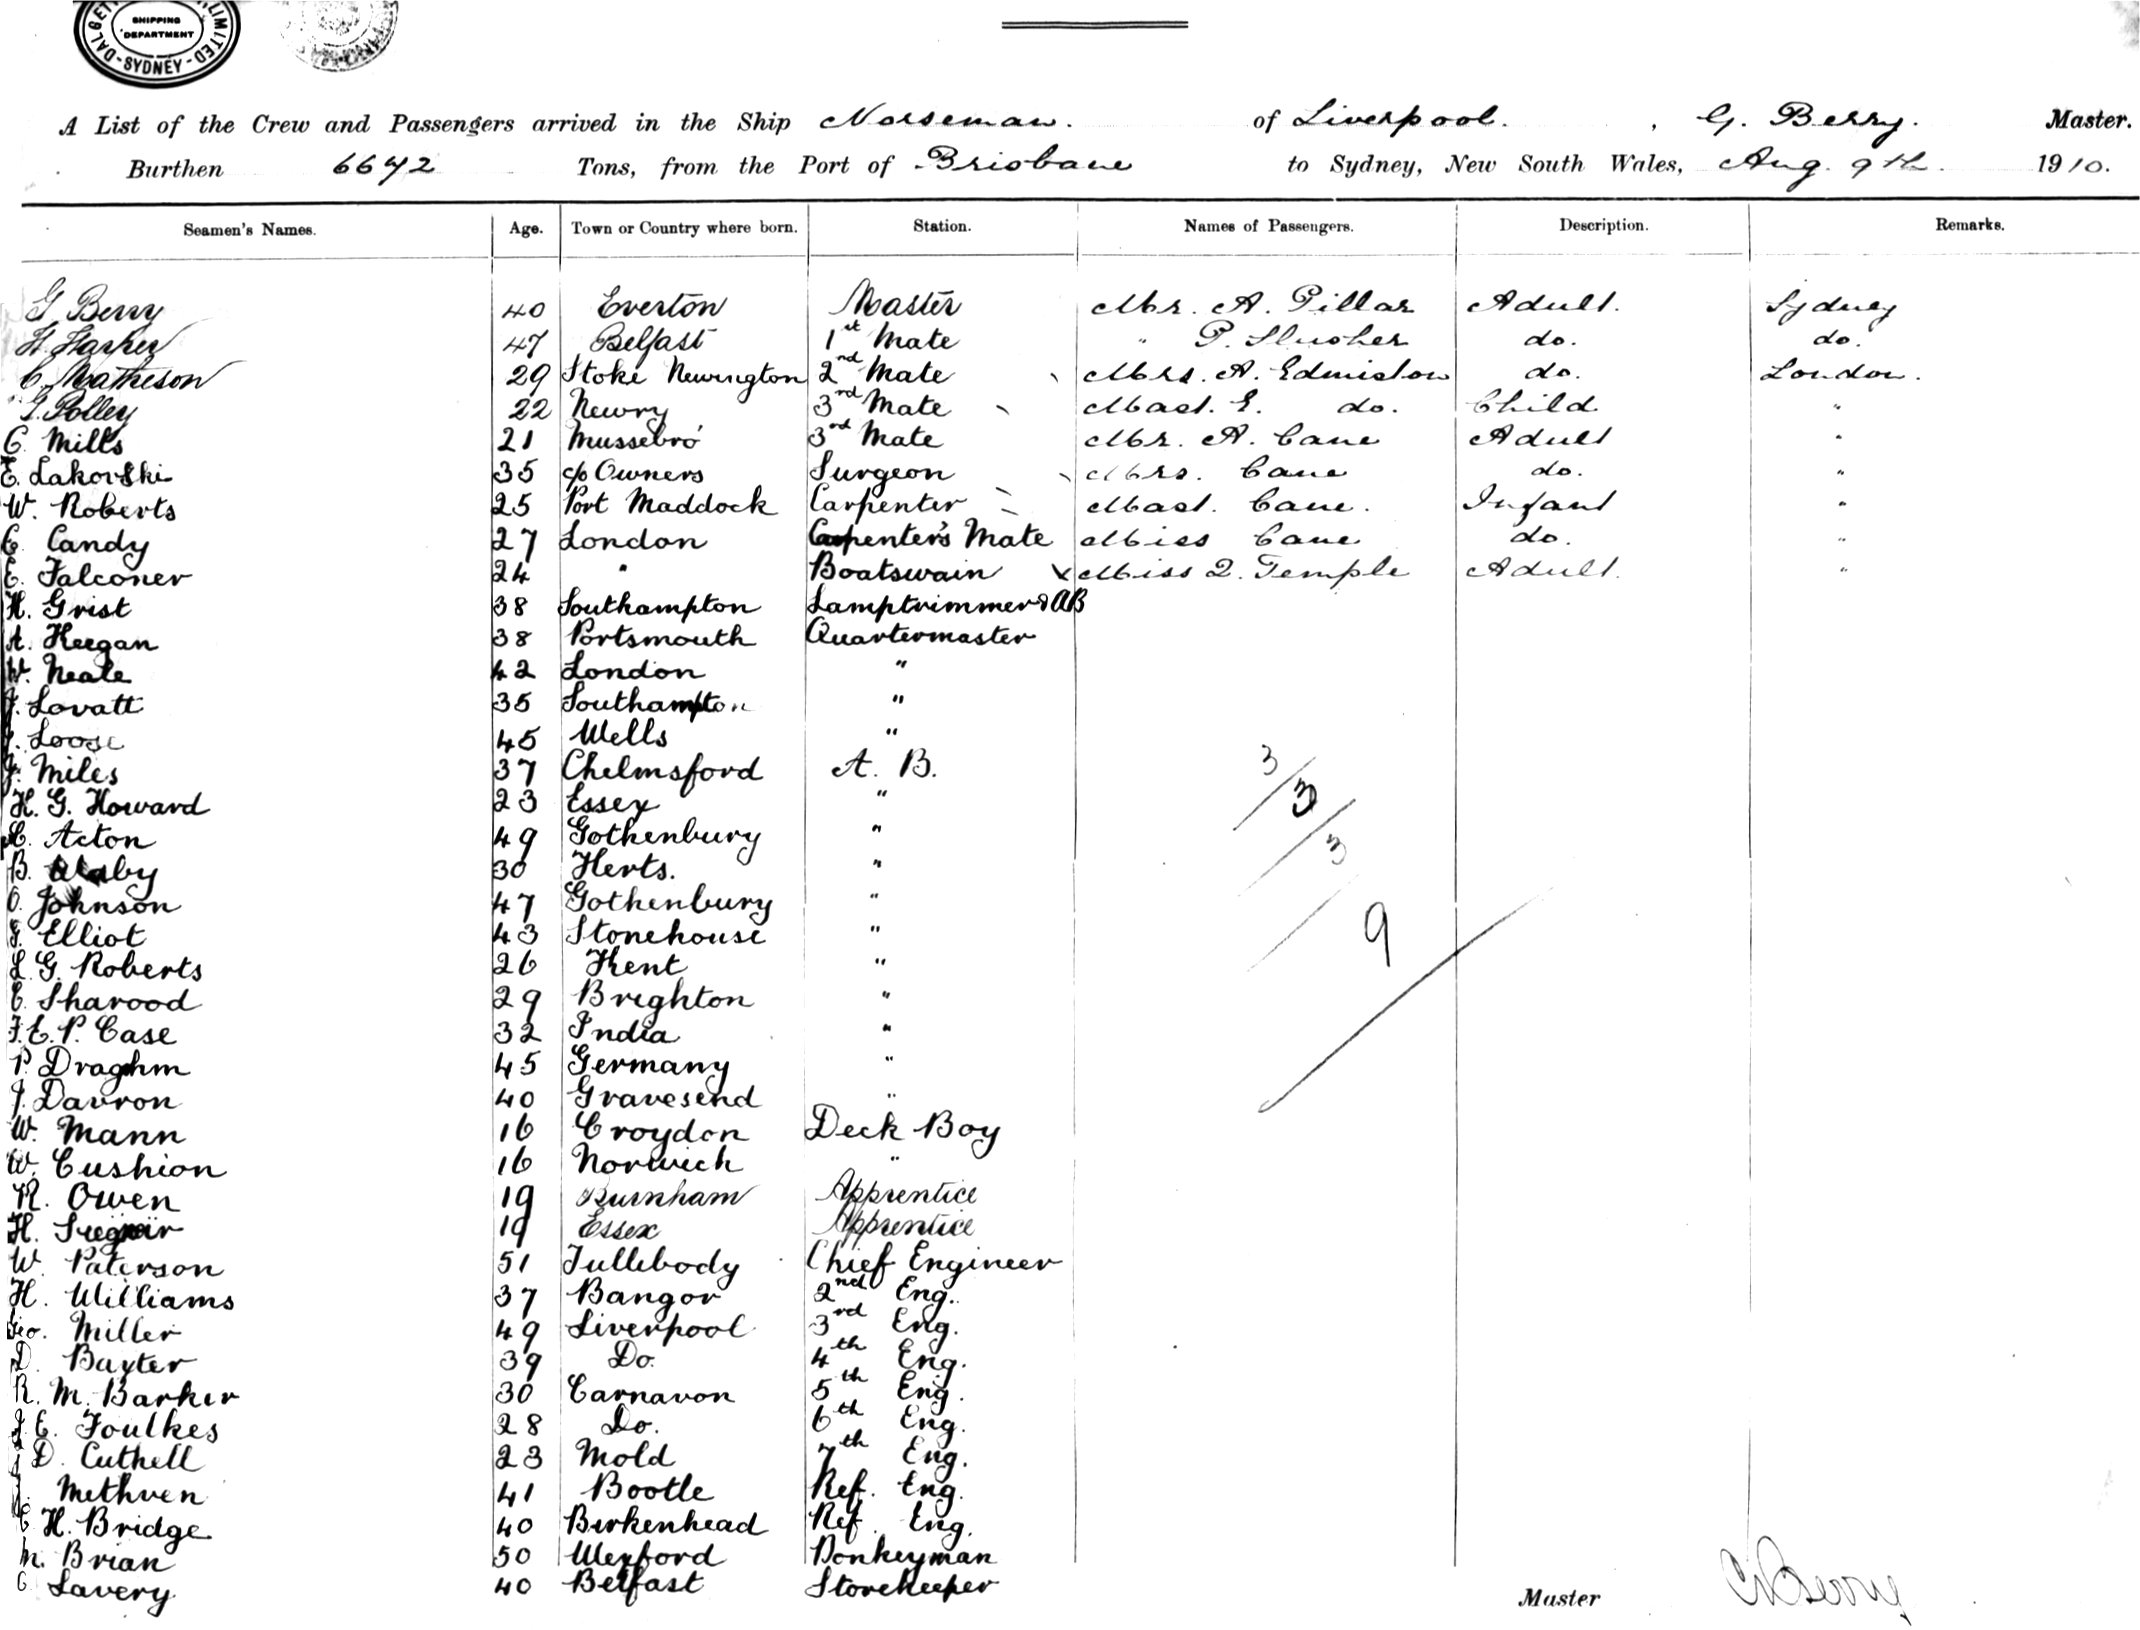 SHIPPING
DEPARTMENT
SYDNEY
LIMITED
A List of the Crew and Passengers arrived in the Ship Norseman. of Liverpool. , G. Berry. Master.
Burthen 6642 Tons, from the Port of Brisbane to Sydney, New South Wales, Aug. 9th. 1910.
Seamen's Names. Age. Town or Country where born. Station. Names of Passengers. Description. Remarks.
G Berry 40 Everton Master Mr. A. Pillar Adult. Sydney
H. Harper 47 Belfast 1st Mate " P. do. do.
C. Matheson 29 Stoke Newington 2nd Mate Mrs. A. Edmiston do. London.
G. Polley 22 Newry 3rd Mate Mast. E. do. Child "
C. Mills 21 Mussebro' 3rd Mate Mr. A. Cane Adult "
E. Lakovski 35 c/o Owners Surgeon Mrs. Cane do. "
W. Roberts 25 Port Maddock Carpenter Mast. Cane. Infant "
C. Candy 27 London Carpenter's Mate Miss Cane do. "
E. Falconer 24 " Boatswain Miss Q. Temple Adult. "
H. Grist 38 Southampton Lamptrimmer & AB
A. Keegan 38 Portsmouth Quartermaster
W. Neale 42 London "
J. Lovatt 35 Southampton "
J. Loose 45 Wells "
J. Miles 37 Chelmsford A. B. 3
H. G. Howard 23 Essex " 3
C. Acton 49 Gothenbury " 3
B. 30 Herts. "
O. Johnson 47 Gothenbury "
G. Elliot 43 Stonehouse " 9
L. G. Roberts 26 Kent "
C. Sharood 29 Brighton "
F. E. P. Case 32 India "
P. Draghm 45 Germany "
J. Davron 40 Gravesend "
W. Mann 16 Croydon Deck Boy
W. Cushion 16 Norwich "
R. Owen 19 Burnham Apprentice
H. 19 Essex Apprentice
W. Paterson 51 Tullebody Chief Engineer
H. Williams 37 Bangor 2nd Eng.
Geo. Miller 49 Liverpool 3rd Eng.
D. Baxter 39 Do. 4th Eng.
R. M. Barker 30 Carnavon 5th Eng.
J. E. Foulkes 28 Do. 6th Eng.
J. D. Cuthell 23 Mold 7th Eng.
J. Methven 41 Bootle Ref. Eng.
C. H. Bridge 40 Birkenhead Ref. Eng.
M. Brian 50 Wexford Donkeyman
C. Lavery 40 Belfast Storekeeper
Master G Berry